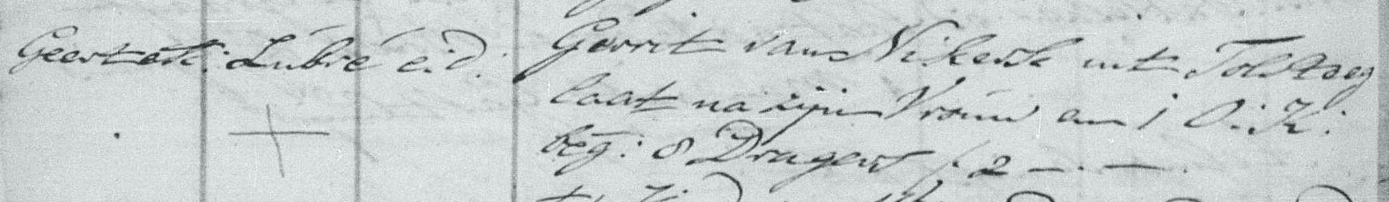 Geertek: Lubré e.d: Gerrit van Nikerk uit Tolsteeg
laat na zijn Vrouw en 1 O: K:
beg: 8 Dragers f 2 — . —